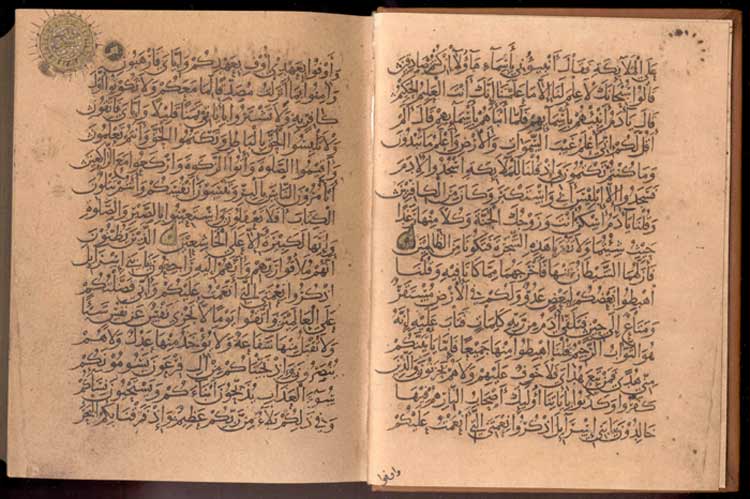 على الملايكة فقال انبئوني بأسماء هاولا ان كنتم صادقين
قالوا سبحانك لا علم لنا الا ما علمتنا انك انت العليم الحكيم
قال يا ادم انبئهم بأسمائهم فلما انباهم بأسمائهم قال الم
اقل لكم اني اعلم غيب السموات والارض واعلم ما تبدون
وما كنتم تكتمون واذ قلنا للملايكة اسجدوا لادم
فسجدوا الا ابليس ابى واستكبر وكان من الكافرين
وقلنا يا ادم اسكن انت وزوجك الجنة وكلا منها رغدا
حيث شئتما ولا تقربا هذه الشجرة فتكونا من الظالمين
فازلهما الشيطان عنها فاخرجهما مما كانا فيه وقلنا
اهبطوا بعضكم لبعض عدو ولكم في الارض مستقر
ومتاع الى حين فتلقى ادم من ربه كلمات فتاب عليه انه
هو التواب الرحيم قلنا اهبطوا منها جميعا فاما ياتينكم
مني هدى فمن تبع هداي فلا خوف عليهم ولا هم يحزنون والذين
كفروا وكذبوا باياتنا اولئك اصحاب النار هم فيها
خالدون يا بني اسرايل اذكروا نعمتي التي انعمت عليكم
واوفوا
واوفوا بعهدي اوف بعهدكم واياي فارهبون
وامنوا بما انزلت مصدقا لما معكم ولا تكونوا اول
كافر به ولا تشتروا باياتي ثمنا قليلا واياي فاتقون
ولا تلبسوا الحق بالباطل وتكتموا الحق وانتم تعلمون
واقيموا الصلوة واتوا الزكوة واركعوا مع الراكعين
اتامرون الناس بالبر وتنسون انفسكم وانتم تتلون
الكتاب افلا تعقلون واستعينوا بالصبر والصلوة
وانها لكبيرة الا على الخاشعين الذين يظنون
انهم ملاقوا ربهم وانهم اليه راجعون يا بني اسرايل
اذكروا نعمتي التي انعمت عليكم واني فضلتكم
على العالمين واتقوا يوما لا تجزي نفس عن نفس شيئا
ولا يقبل منها شفاعة ولا يؤخذ منها عدل ولا هم
ينصرون واذ نجيناكم من ال فرعون يسومونكم
سوء العذاب يذبحون ابناءكم ويستحيون نساءكم
وفي ذلكم بلاء من ربكم عظيم واذ فرقنا بكم البحر